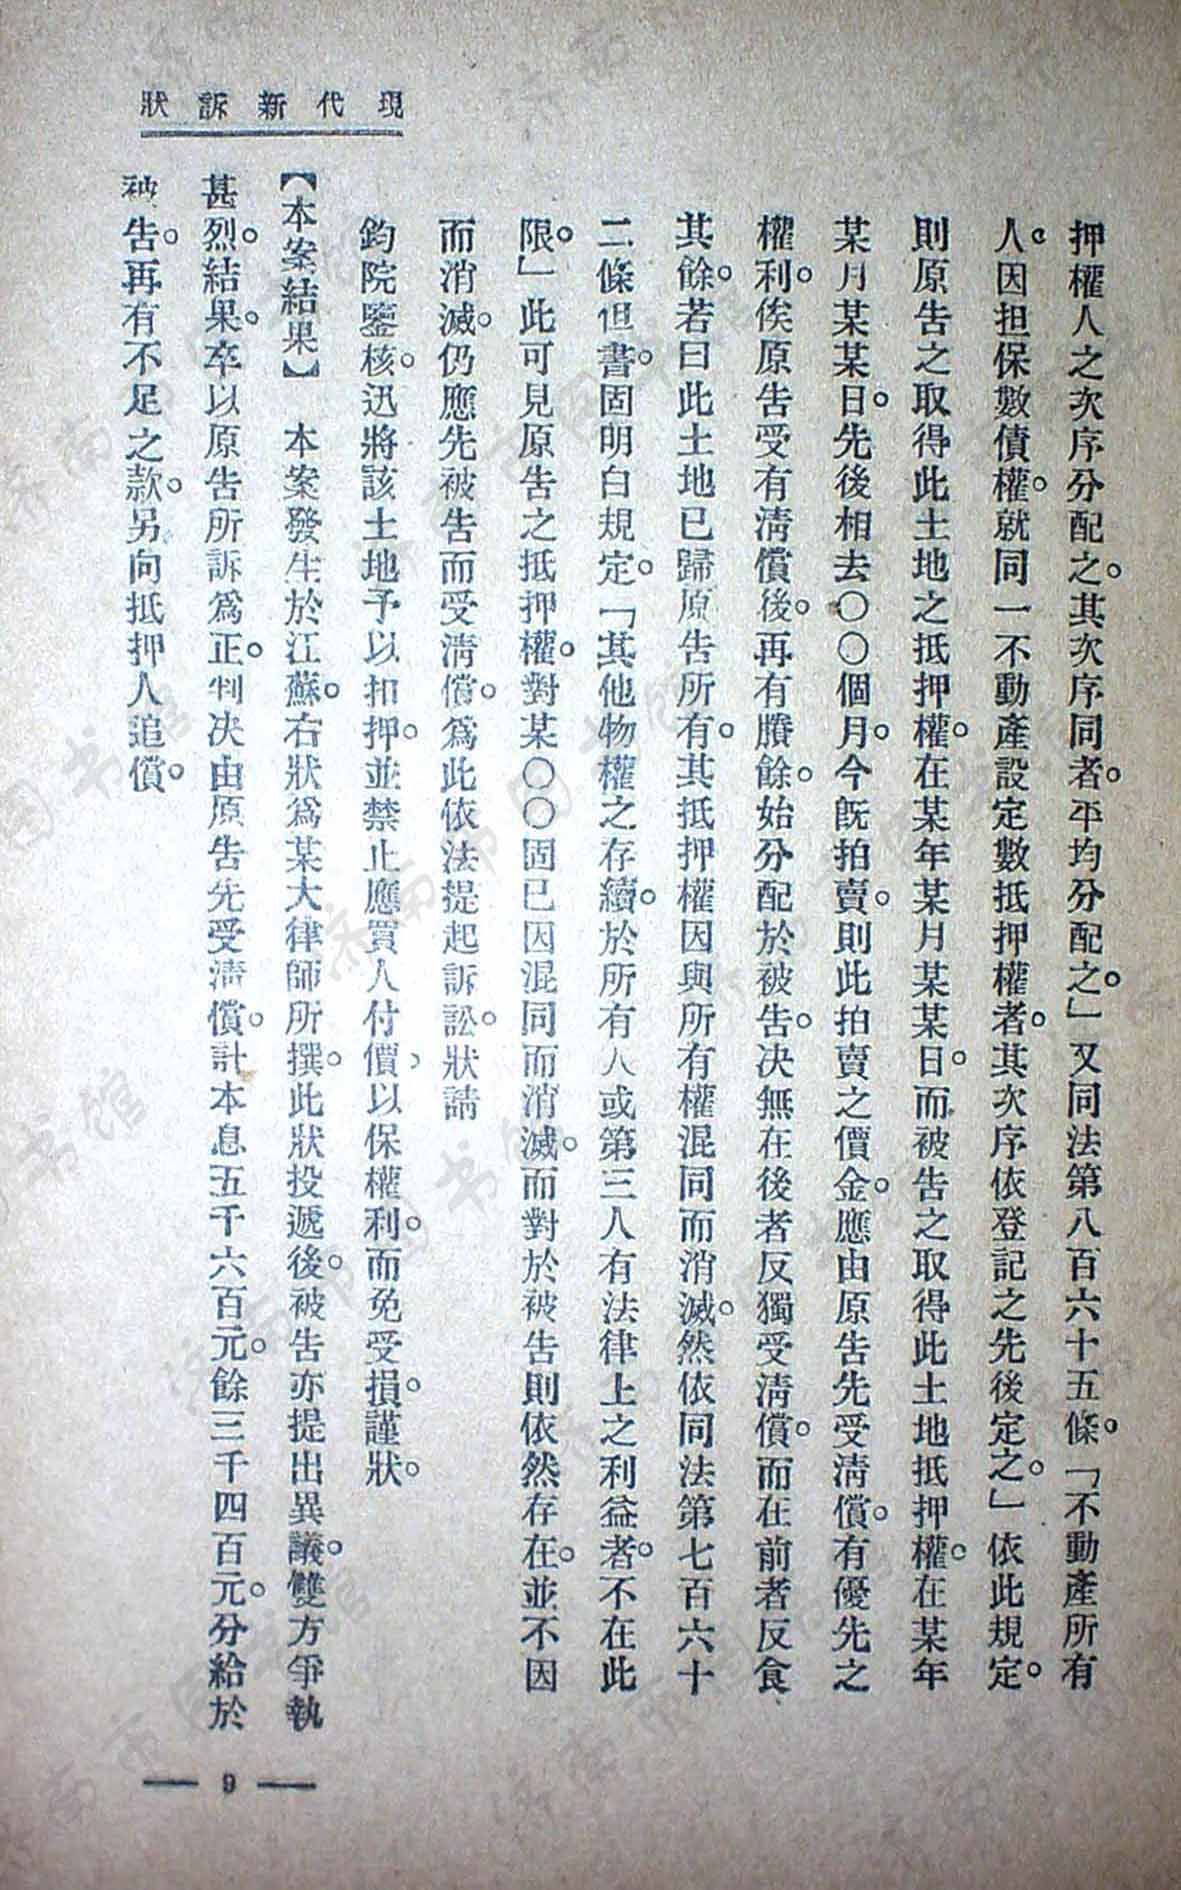 現代新訴狀
押權人之次序分配之。其次序同者。平均分配之。」又同法第八百六十五條。「不動產所有
人。因担保數債權。就同一不動產設定數抵押權者。其次序依登記之先後定之。」依此規定。
則原告之取得此土地之抵押權。在某年某月某某日。而被告之取得此土地抵押權。在某年
某月某某日。先後相去〇〇個月。今既拍賣。則此拍賣之價金。應由原告先受淸償。有優先之
權利。俟原告受有淸償後。再有賸餘。始分配於被告。决無在後者反獨受淸償。而在前者反食
其餘。若曰此土地已歸原告所有。其抵押權因與所有權混同而消滅。然依同法第七百六十
二條但書。固明白規定。「其他物權之存續。於所有人或第三人有法律上之利益者。不在此
限。」此可見原告之抵押權。對某〇〇固已因混同而消滅。而對於被告則依然存在。並不因
而消滅。仍應先被告而受淸償。爲此依法提起訴訟。狀請
鈞院鑒核。迅將該土地予以扣押。並禁止應買人付價，以保權利。而免受損。謹狀。
【本案結果】　本案發生於江蘇。右狀爲某大律師所撰。此狀投遞後。被告亦提出異議。雙方爭執
甚烈。結果。卒以原告所訴爲正。判决由原告先受淸償。計本息五千六百元。餘三千四百元。分給於
被告。再有不足之款。另向抵押人追償。
— 9 —
济南市图书馆